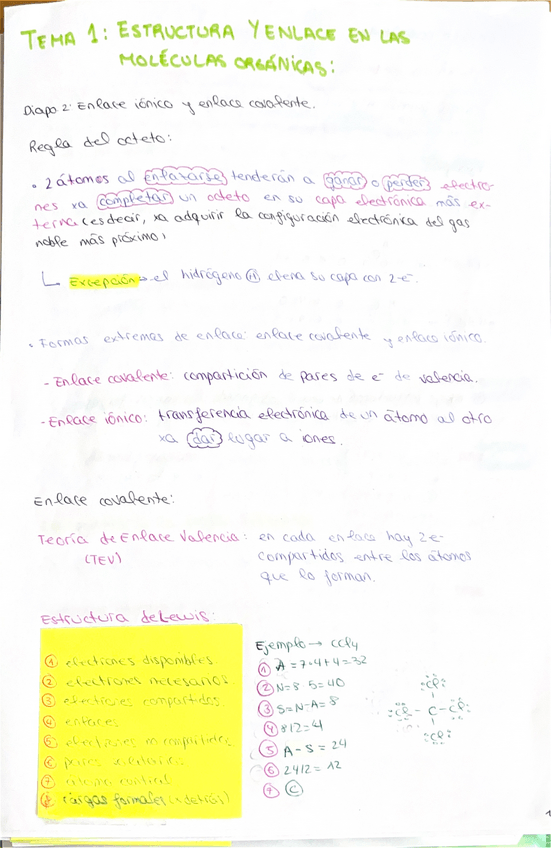 TEMA 1: ESTRUCTURA Y ENLACE EN LAS
MOLÉCULAS ORGÁNICAS:
Diapo 2: Enlace iónico y enlace covalente.
Regla del octeto:
• 2 átomos al enlazarse tenderán a ganar o perder electro-
nes xa completar un octeto en su capa electrónica más ex-
terna (es decir, xa adquirir la configuración electrónica del gas
noble más próximo)
Excepción → el hidrógeno (H) llena su capa con 2e⁻.
• Formas extremas de enlace: enlace covalente y enlace iónico.
- Enlace covalente: compartición de pares de e⁻ de valencia.
- Enlace iónico: transferencia electrónica de un átomo al otro
xa dar lugar a iones.
Enlace covalente:
Teoría de Enlace Valencia: en cada enlace hay 2e⁻
(TEV) compartidos entre los átomos
que lo forman.
Estructura de Lewis:
① electrones disponibles
② electrones necesarios
③ electrones compartidos
④ enlaces
⑤ electrones no compartidos
⑥ pares solitarios
⑦ átomo central
⑧ cargas formales (x detrás)
Ejemplo → CCl4
① A = 7·4+4=32
② N=8·5=40
③ S=N-A=8
④ 8/2=4
⑤ A-S=24
⑥ 24/2=12
⑦ C
Cl
Cl - C - Cl
Cl
1